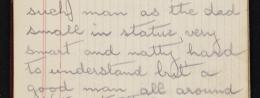 such) man as the dad
small in status, very
smart and natty, hard
to understand but a
good man all around